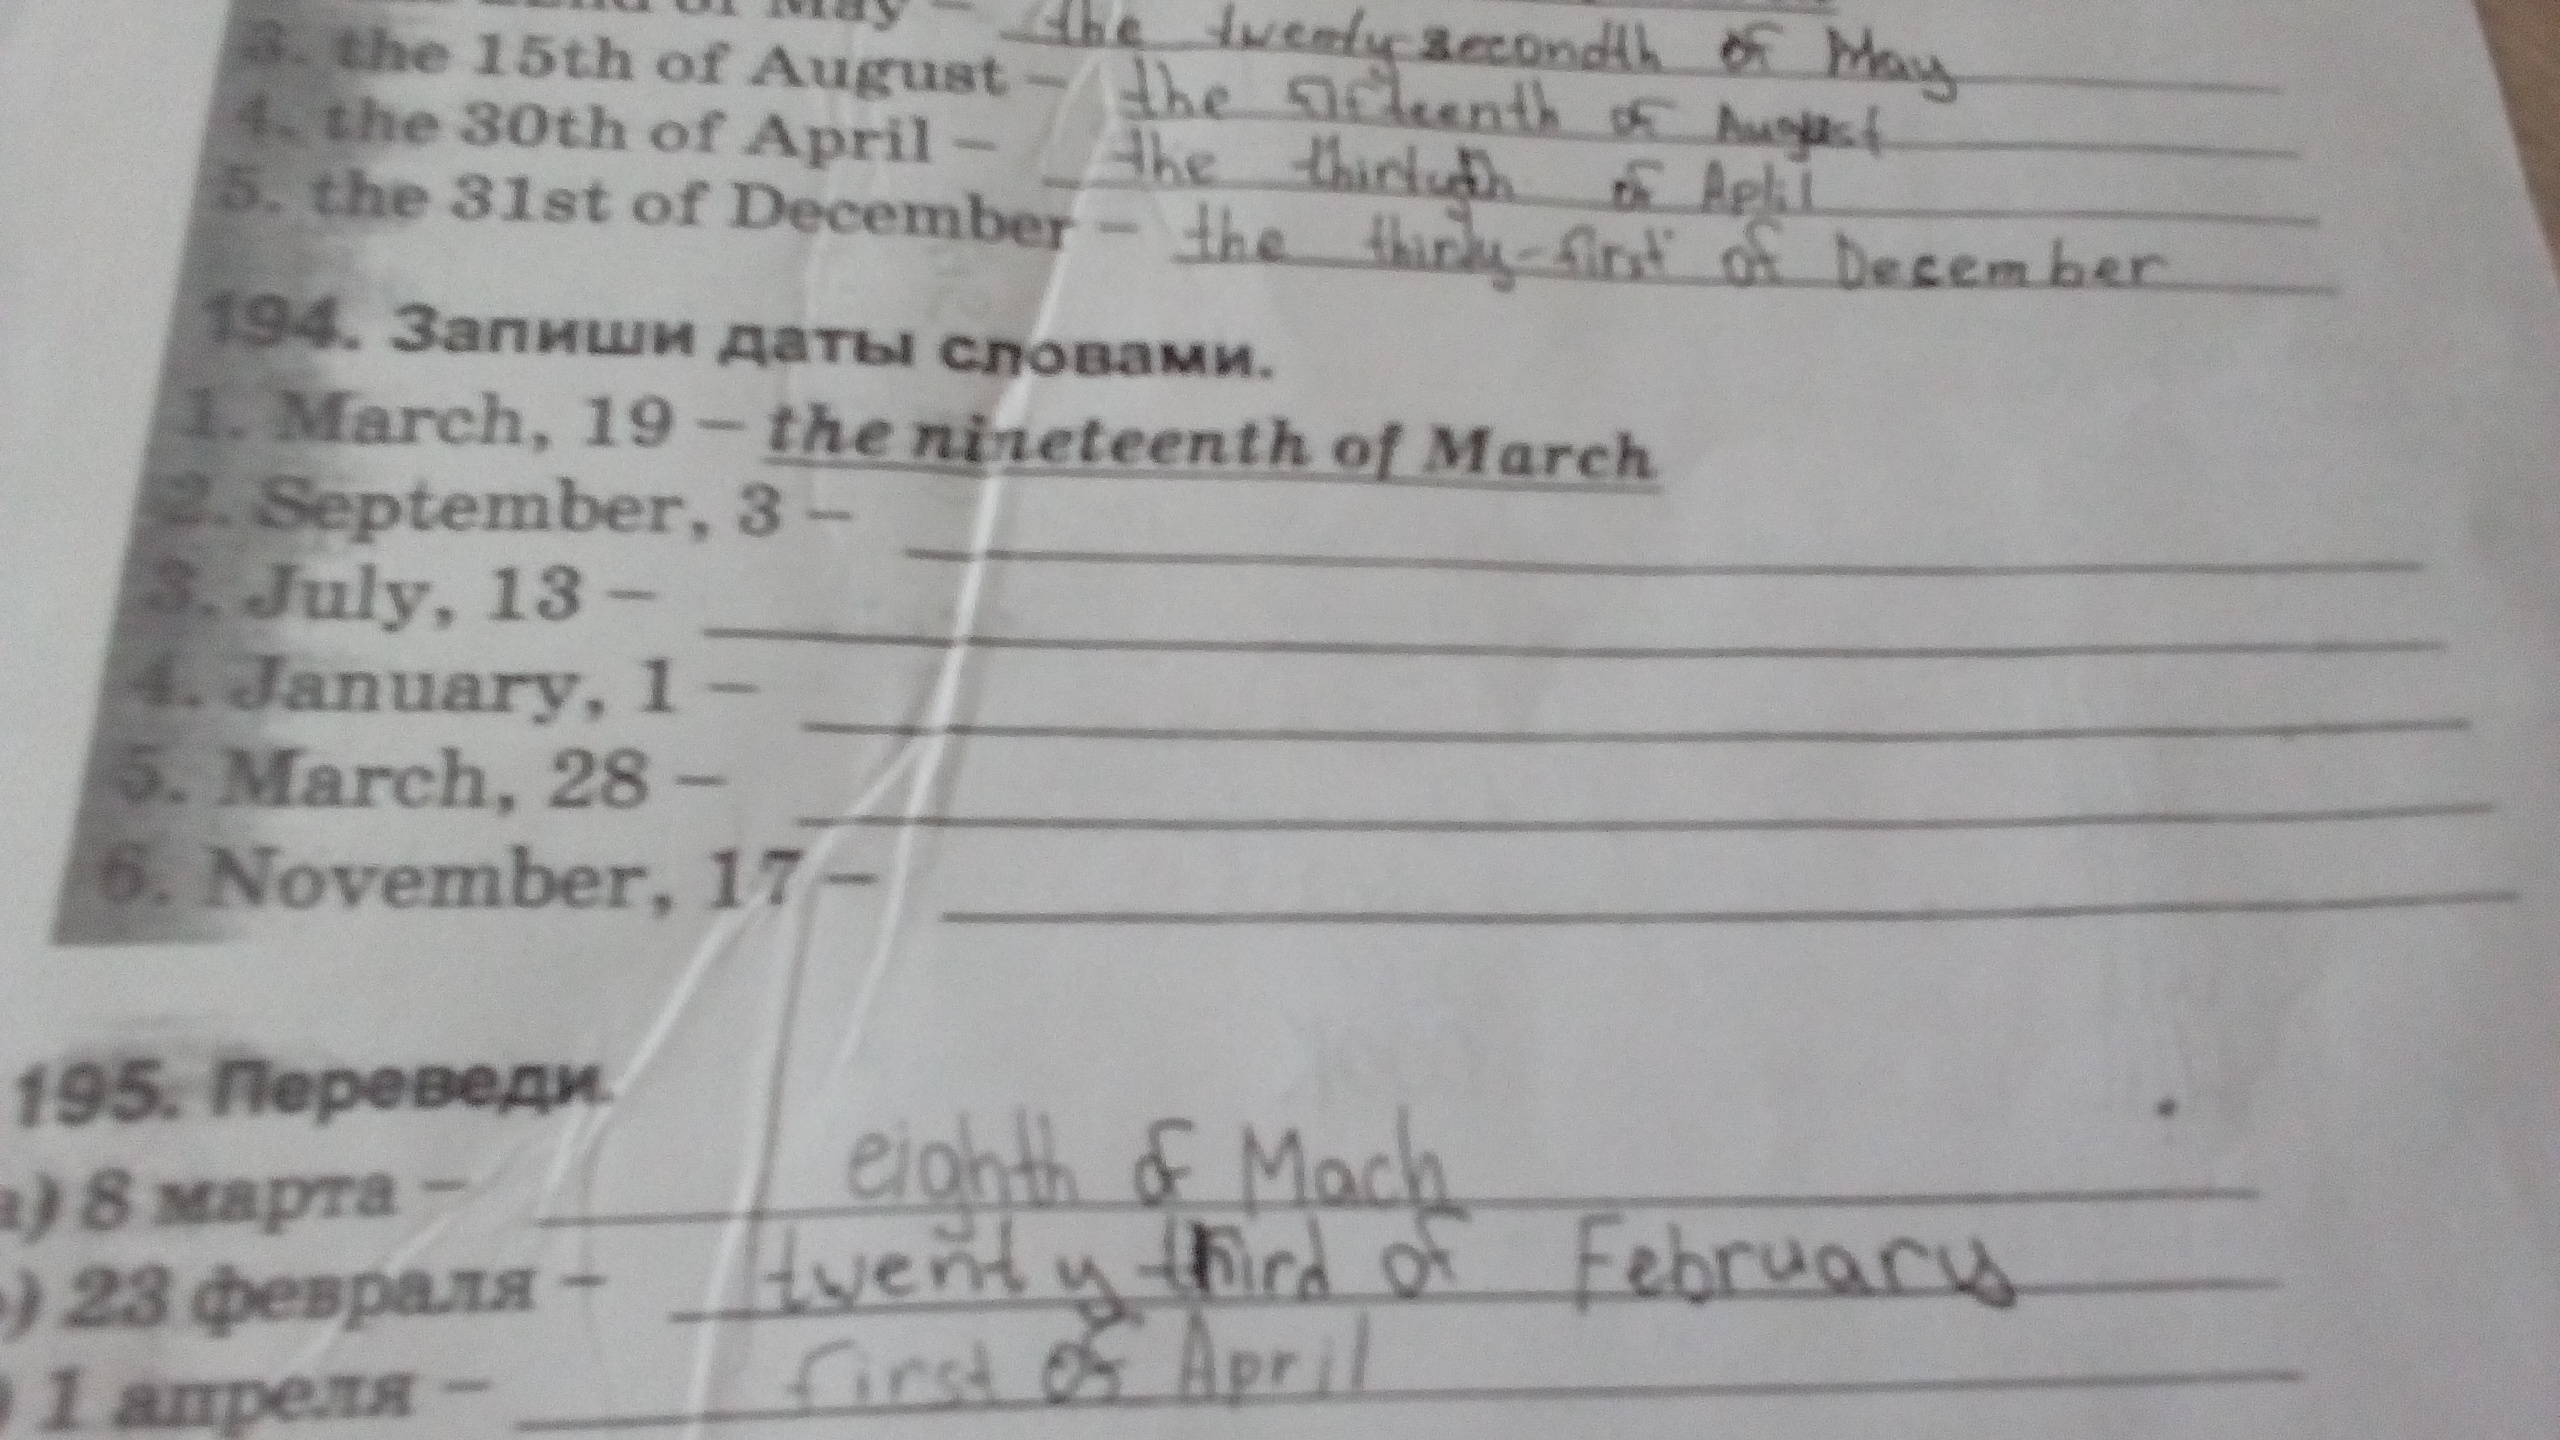 of May – the twenty secondth of May
3. the 15th of August – the fifteenth of August
4. the 30th of April – the of April
5. the 31st of December – the thirty-first of December
194. Запиши даты словами.
1. March, 19 – the nineteenth of March
2. September, 3 –
3. July, 13 –
4. January, 1 –
5. March, 28 –
6. November, 17 –
195. Переведи.
a) 8 марта – eighth of Mach
) 23 февраля – twenty third of February
) 1 апреля – first of April